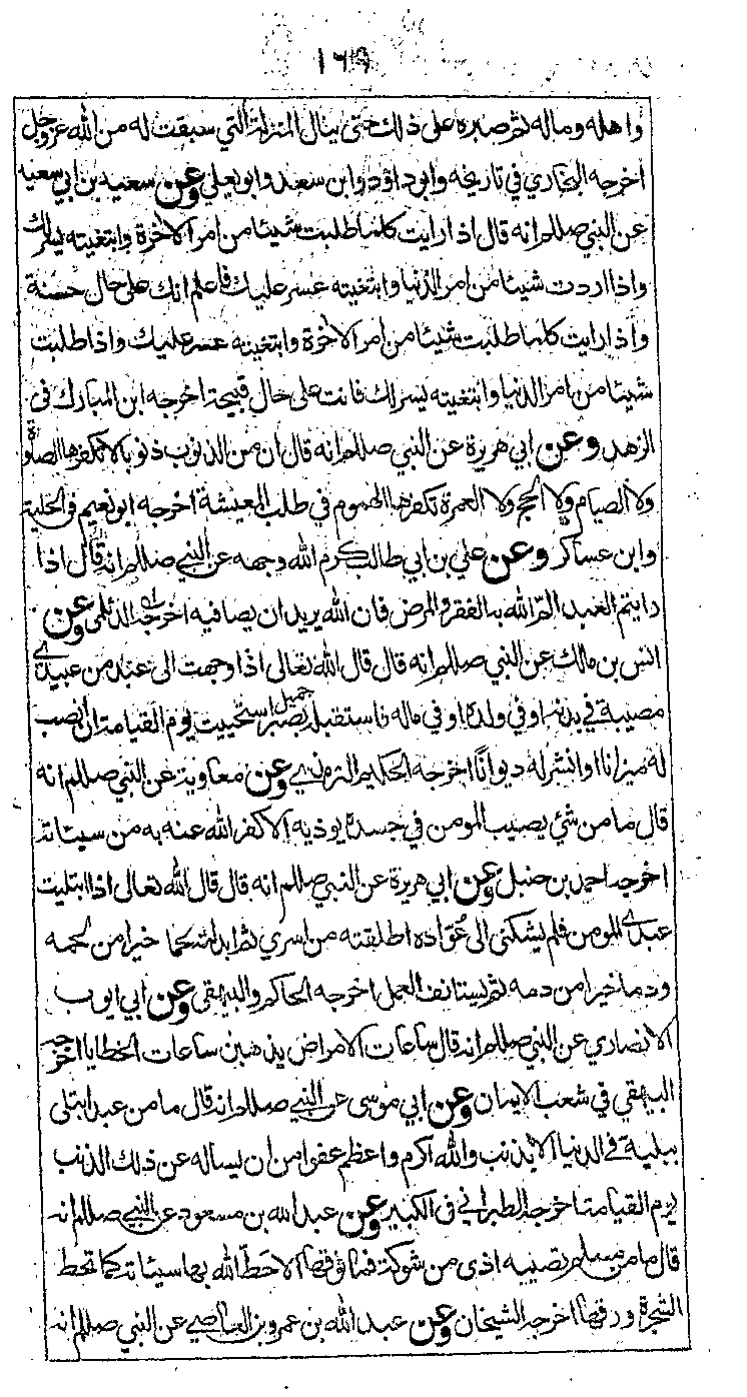 ١٦٩
واهله وماله ثم صبره على ذلك حتى ينال المنزلة التي سبقت له من الله عز وجل
اخرجه البخاري في تاريخه وابو داؤد وابن سعد وابو يعلى وعن سعيد بن ابي سعيد
عن النبي صللم انه قال اذا رايت كلما طلبت شيئا من امر الاخرة وابتغيته يسر لك
واذا اردت شيئا من امر الدنيا وابتغيته عسر عليك فاعلم انك على حال حسنة
واذا رايت كلما طلبت شيئا من امر الاخرة وابتغيته عسر عليك واذا طلبت
شيئا من امر الدنيا وابتغيته يسر لك فانت على حال قبيحة اخرجه ابن المبارك في
الزهد وعن ابي هريرة عن النبي صللم انه قال ان من الذنوب ذنوبا لا تكفرها الصلوة
ولا الصيام ولا الحج ولا العمرة تكفرها الهموم في طلب المعيشة اخرجه ابو نعيم في الحلية
وابن عساكر وعن علي بن ابي طالب كرم الله وجهه عن النبي صللم انه قال اذا
رايتم العبد الم الله به الفقر والمرض فان الله يريد ان يصافيه اخرجه الديلمي وعن
انس بن مالك عن النبي صللم انه قال قال الله تعالى اذا وجهت الى عبد من عبيدي
مصيبة في بدنه او في ولده او في ماله فاستقبله بصبر جميل استحييت يوم القيامة ان انصب
له ميزانا او انشر له ديوانًا اخرجه الحكيم الترمذي وعن معاوية عن النبي صللم انه
قال ما من شئ يصيب المومن في جسده يوذيه الا كفر الله عنه به من سيئاته
اخرجه احمد بن حنبل وعن ابي هريرة عن النبي صللم انه قال قال الله تعالى اذا ابتليت
عبدي المومن فلم يشكني الى عُوّاده اطلقته من اسري ثم ابدلته لحما خيرا من لحمه
ودما خيرا من دمه ثم يستانف العمل اخرجه الحاكم والبيهقي وعن ابي ايوب
الانصاري عن النبي صللم انه قال ساعات الامراض يذهبن ساعات الخطايا اخرجه
البيهقي في شعب الايمان وعن ابي موسى عن النبي صللم انه قال ما من عبد ابتلى
ببلية في الدنيا الا بذنب والله اكرم واعظم عفوا من ان يساله عن ذلك الذنب
يوم القيامة اخرجه الطبراني في الكبير وعن عبد الله بن مسعود عن النبي صللم انه
قال ما من مسلم يصيبه اذى من شوكة فما فوقها الا حَطّ الله بها سيئاته كما تحط
الشجرة ورقها اخرجه الشيخان وعن عبد الله بن عمرو بن العاصي عن النبي صللم انه